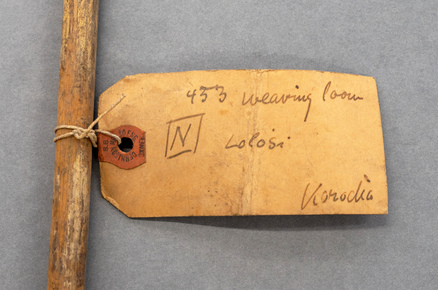 453 weaving loom
N Lolosi
Korodia